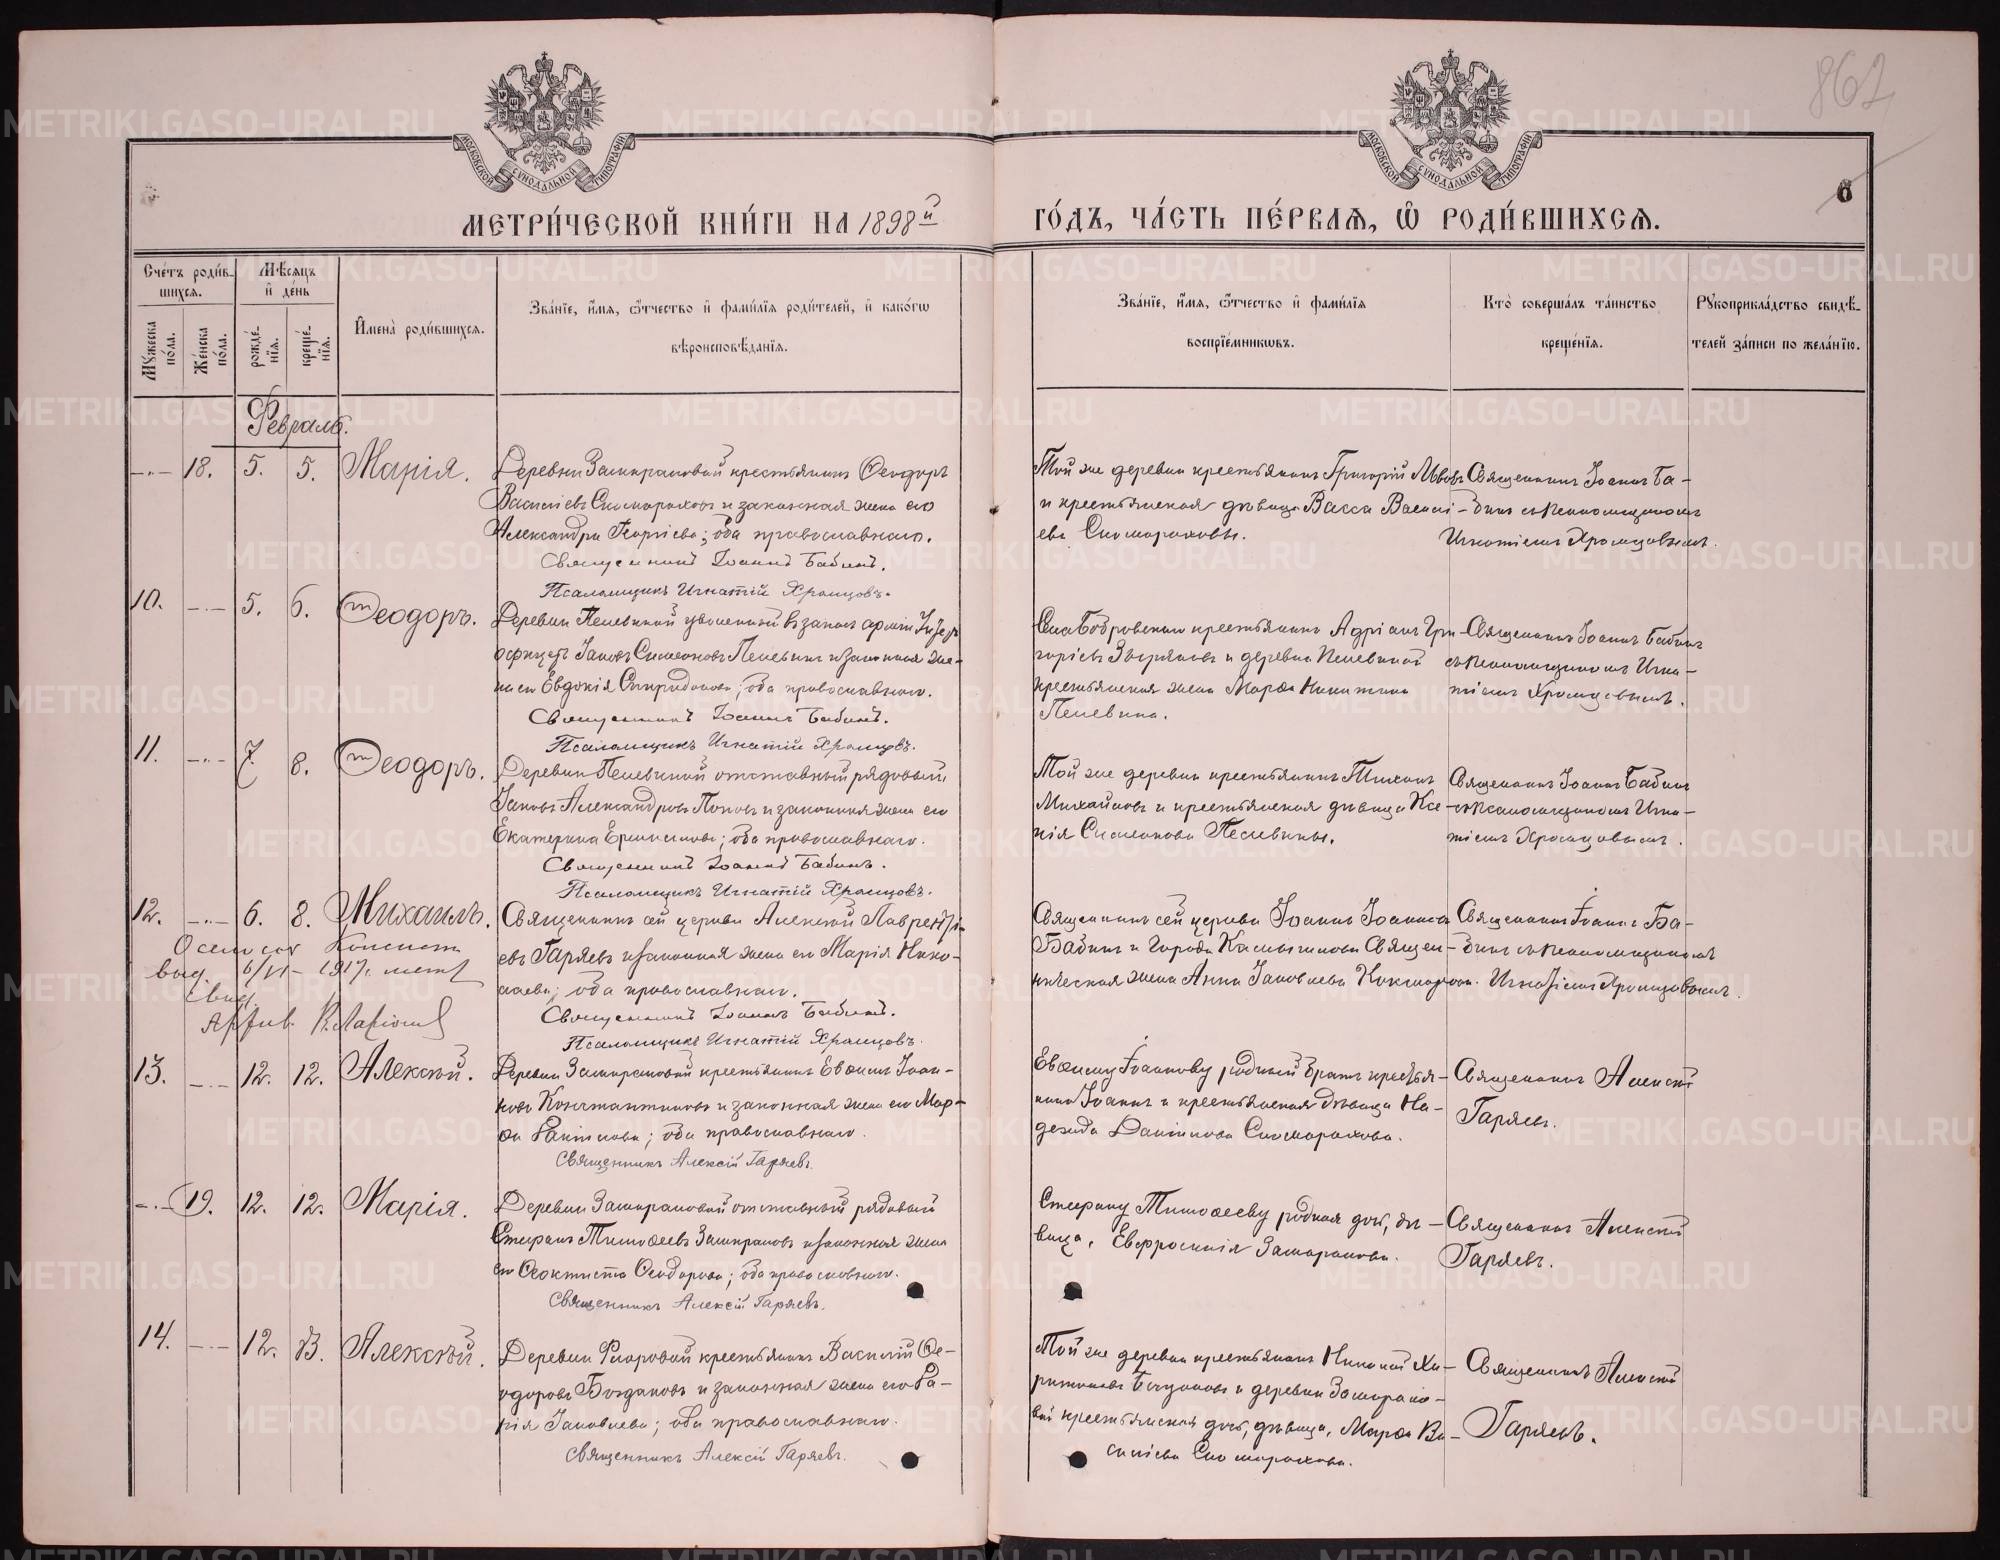 862
6
МОСКОВСКОЙ СУНОДАЛЬНОЙ ТИПОГРАФИИ
МОСКОВСКОЙ СУНОДАЛЬНОЙ ТИПОГРАФИИ
МЕТРИ́ЧЕСКОЙ КНИ́ГИ НА 1898й ГО́ДЪ, ЧА́СТЬ ПЕ́РВАѦ, Ѽ РОДИ́ВШИХСѦ.
Сче́тъ роди́в-
шихсѧ.
Мꙋжеска по́ла.
Же́нска по́ла.
Мѣ́сѧцъ и҆ де́нь
рожде́-нїѧ.
креще́-нїѧ.
И҆мена̀ роди́вшихсѧ.
Зва́нїе, и҆́мѧ, ѻ҆́тчество и҆ фами́лїѧ роди́телей, и҆ како́гѡ
вѣроисповѣ́данїѧ.
Зва́нїе, и҆́мѧ, ѻ҆́тчество и҆ фами́лїѧ
воспрїе́мникѡвъ.
Кто̀ соверша́лъ та́инство
креще́нїѧ.
Рꙋкоприкла́дство свидѣ́-
телей за́писи по жела́нїю.
Февраль.
18. 5. 5. Марія.
Деревни Замараевой крестьянинъ Ѳеодоръ
Василіевъ Скомороховъ и законная жена его
Александра Георгіева; оба православнаго.
Священникъ Іоаннъ Бабинъ.
Псаломщикъ Игнатій Храмцовъ.
Той же деревни крестьянинъ Григорій Львовъ
и крестьянская дѣвица Васса Василі-
ева Скомороховы.
Священникъ Іоаннъ Ба-
бинъ съ псаломщикомъ
Игнатіемъ Храмцовымъ.
10. 5. 6. Ѳеодоръ.
Деревни Пелевиной уволенный въ запасъ арміи
Іаковъ Симеоновъ Пелевинъ и законная же-
на его Евдокія Спиридонова; оба православнаго.
Священникъ Іоаннъ Бабинъ.
Псаломщикъ Игнатій Храмцовъ.
Села Бобровскаго крестьянинъ Адріанъ Гри-
горіевъ Звѣряковъ и деревни Пелевиной
крестьянская жена Марѳа Никитина
Пелевина.
Священникъ Іоаннъ Бабинъ
съ псаломщикомъ Игна-
тіемъ Храмцовымъ.
11. 7. 8. Ѳеодоръ.
Деревни Пелевиной отставный рядовый
Іаковъ Александровъ Поповъ и законная жена его
Екатерина; оба православнаго.
Священникъ Іоаннъ Бабинъ.
Псаломщикъ Игнатій Храмцовъ.
Той же деревни крестьянинъ Тихонъ
Михайловъ и крестьянская дѣвица Ксе-
нія Симеонова Пелевины.
Священникъ Іоаннъ Бабинъ
съ псаломщикомъ Игна-
тіемъ Храмцовымъ.
12. 6. 8. Михаилъ.
выд. 6/VI – 1917 г.
Священникъ сей церкви Алексій Лаврентьі-
евъ Гаряевъ и законная жена его Марія Нико-
лаева; оба православнаго.
Священникъ Іоаннъ Бабинъ.
Псаломщикъ Игнатій Храмцовъ.
Священникъ сей церкви Іоаннъ Іоанновъ
Бабинъ и города Камышлова Священ-
ническая жена Анна Іаковлева
Священникъ Іоаннъ Ба-
бинъ съ псаломщикомъ
Игнатіемъ Храмцовымъ.
13. 12. 12. Алексѣй.
Деревни Замараевой крестьянинъ Евѳимъ Іоан-
новъ Константиновъ и законная жена его Мар-
ѳа; оба православнаго.
Священникъ Алексій Гаряевъ.
Евѳиму Іоаннову родный братъ крестья-
нинъ Іоаннъ и крестьянская дѣвица На-
дежда Даніилова Скоморохова.
Священникъ Алексій
Гаряевъ.
19. 12. 12. Марія.
Деревни Замараевой отставный рядовый
Стефанъ Тимоѳеевъ Замараевъ и законная жена
его Ѳеоктиста Ѳеодорова; оба православнаго.
Священникъ Алексій Гаряевъ.
Стефану Тимоѳееву родная дочь, дѣ-
вица, Евфросинія Замараева.
Священникъ Алексій
Гаряевъ.
14. 12. 13. Алексѣй.
Деревни Фларовой крестьянинъ Василій Ѳе-
одоровъ Богдановъ и законная жена его
Іаковлева; оба православнаго.
Священникъ Алексій Гаряевъ.
Той же деревни крестьянинъ Николай Ха-
ритоновъ Богдановъ и деревни Замарае-
вой крестьянская дочь, дѣвица, Марѳа Ва-
силіева Скоморохова.
Священникъ Алексій
Гаряевъ.
METRIKI.GASO-URAL.RU